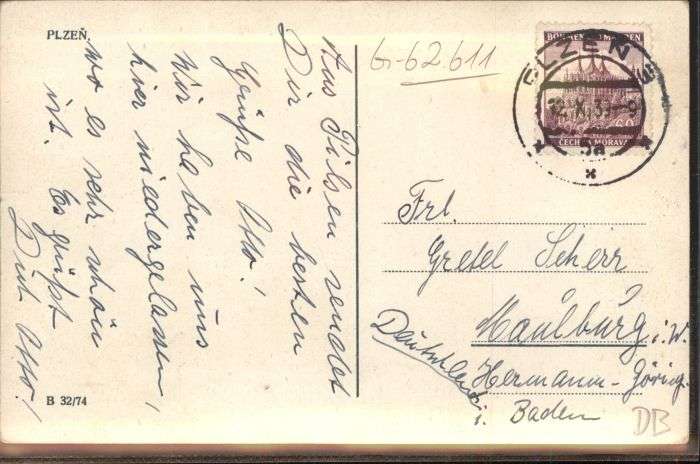 PLZEŇ,
Aus Pilsen sendet
Dir die besten
Grüße Otto!
Wir haben uns
hier niedergelassen,
wo es sehr schön
ist. Es grüßt
Dich Otto!
B 32/74
G-62.611
BÖHMEN MÄHREN
ČECHY A MORAVA
60
PLZEŇ
X
Frl.
Gretel Scherr
Maulburg i. W.
Hermann-Göring-
Deutschland
i. Baden
DB